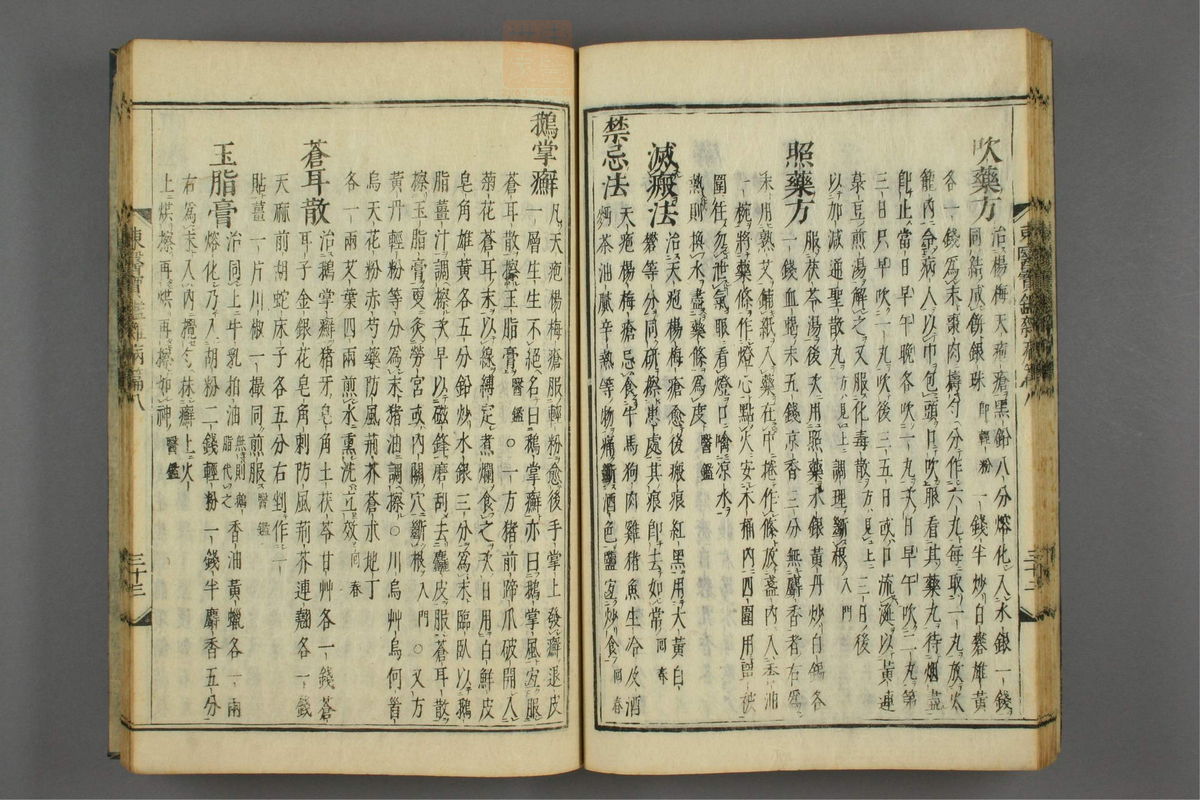 吹藥方
治楊梅天疱瘡黑鉛八分熔化入水銀一錢
同結成餠銀珠卽輕粉一錢半炒白礬雄黃
各一錢爲末棗肉擣勻分作六丸每取一丸放火
籠內令病人以巾包頭口吹服看其藥丸待烟盡
卽止當日早午晚各吹一丸次日早午吹二丸第
三日只早吹一丸吹後三五日或口流涎以黃連
菉豆煎湯解之又服化毒散方見上三日後
以加減通聖散丸方見上調理斷根入門
照藥方
服茯苓湯後次用照藥水銀黃丹炒白錫各
一錢血蝎末五錢沉香三分無麝香者右爲
末用熟艾鋪紙入藥在中捲作條放盞內入香油
一椀將藥條作燈心點火安木桶內四圍用
圍住勿泄氣服看燈口噙凉水
熱則換水盡藥條爲度醫鑑
滅瘢法
治天疱楊梅瘡愈後瘢痕紅黑用大黃白
礬等分同硏擦患處其痕卽去如常回春
禁忌法
天疱楊梅瘡忌食牛馬狗肉雞猪魚生冷及酒
麪茶油膩辛熱等物痛斷酒色鹽宜炒食回春
東醫寶鑑雜病篇八
三十二
鵝掌癬
凡天疱楊梅瘡服輕粉愈後手掌上發癬退皮
一層生生不絕名曰鵝掌癬亦曰鵝掌風宜服
蒼耳散擦玉脂膏醫鑑○一方猪前蹄爪破開入
菊花蒼耳末以線縛定煮爛食之次日用白鮮皮
皂角雄黃各五分鉛炒水銀三分爲末臨臥以鵝
脂薑汁調擦次早以磁鋒磨刮去麤皮服蒼耳散
擦玉脂膏更灸勞宮或內關穴斷根入門○又方
黃丹輕粉等分爲末猪油調擦○川烏艸烏何首
烏天花粉赤芍藥防風荊芥蒼朮地丁
各一兩艾葉四兩煎水熏洗立效回春
蒼耳散
治鵝掌癬猪牙皂角土茯苓甘艸各一錢蒼
耳子金銀花皂角刺防風荊芥連翹各一錢
天麻前胡蛇床子各五分右剉作一
貼薑一片川椒一撮同煎服醫鑑
玉脂膏
治同上牛乳拍油無則鵝脂代之香油黃蠟各一兩
熔化乃入胡粉二錢輕粉一錢半麝香五分
右爲末入內攪勻抹癬上火
上烘擦再烘再擦如神醫鑑
東醫寶鑑雜病篇八
三十三